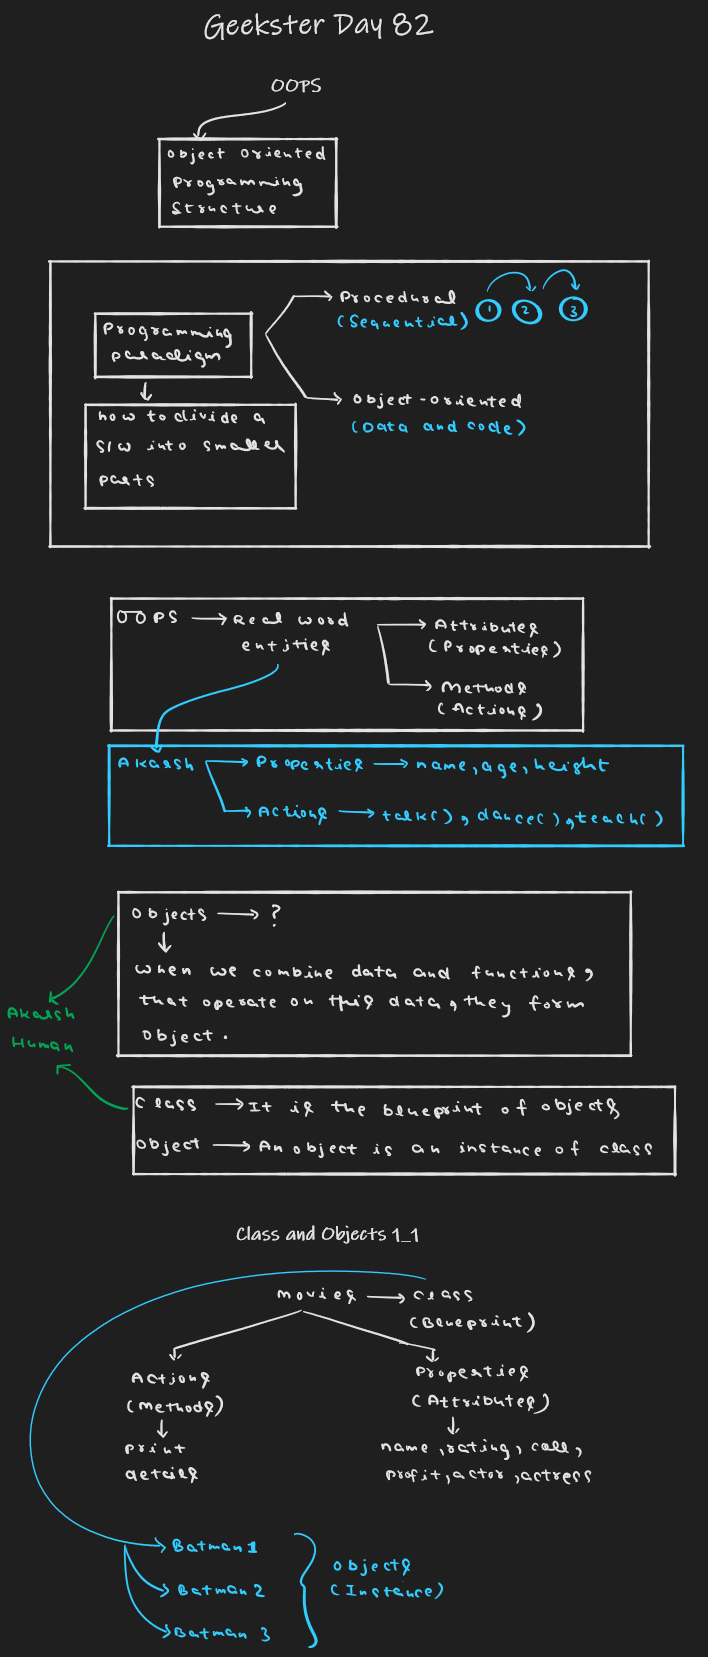 Geekster Day 82
OOPS
Object Oriented
Programming
Structure
Programming
paradigm
how to divide a
S/W into smaller
parts
Procedural
(Sequential)
1 2 3
Object-oriented
(Data and code)
OOPS
Real word
entities
Attributes
(Properties)
Methods
(Actions)
Akarsh
Properties
name, age, height
Actions
talk(), dance(), teach()
Objects
?
When we combine data and functions,
that operate on this data, they form
object.
Akarsh
Human
Class
It is the blueprint of objects
Object
An object is an instance of class
Class and Objects 1_1
Movies
Class
(Blueprint)
Actions
(Methods)
print
details
Properties
(Attributes)
name, rating, coll,
profit, actor, actress
Batman 1
Batman 2
Batman 3
Objects
(Instance)